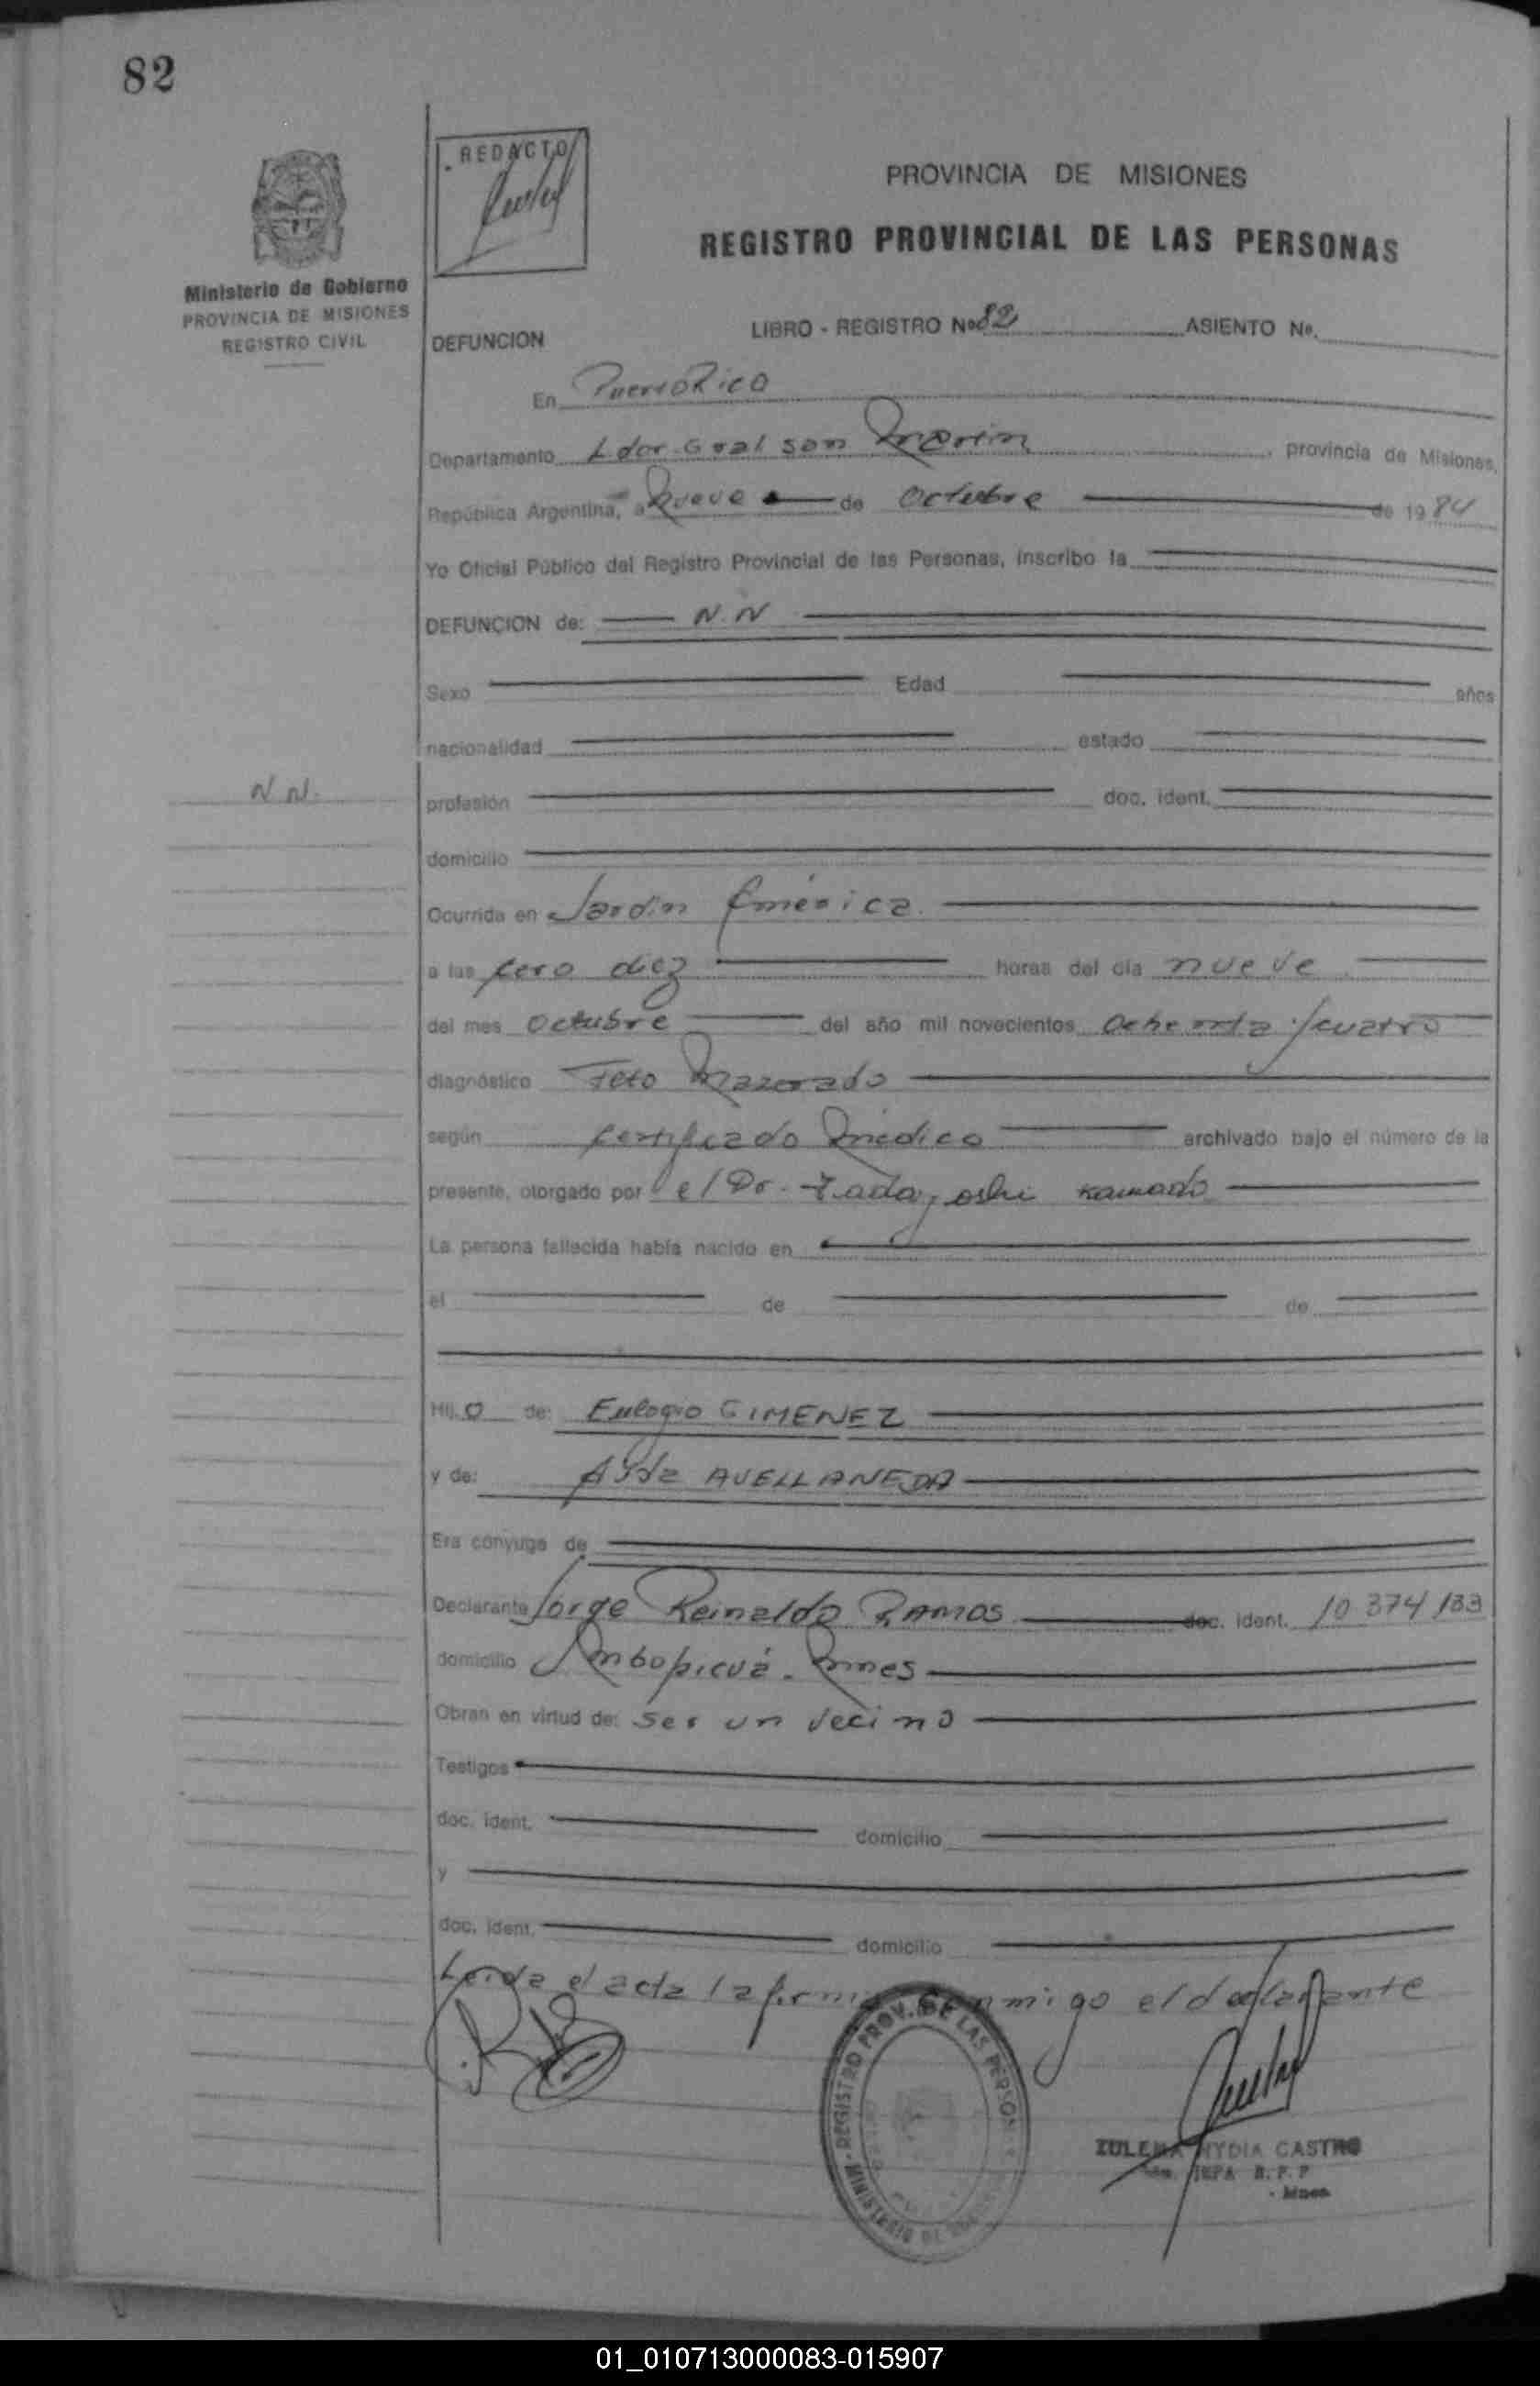 82
REDACTO
PROVINCIA DE MISIONES
REGISTRO PROVINCIAL DE LAS PERSONAS
Ministerio de Gobierno
PROVINCIA DE MISIONES
REGISTRO CIVIL
LIBRO - REGISTRO Nº 82 ASIENTO Nº.
DEFUNCION
En Puerto Rico
Departamento Ldor Gral San Martin, provincia de Misiones,
República Argentina, a Nueve de Octubre de 1984
Yo Oficial Público del Registro Provincial de las Personas, inscribo la
DEFUNCION de: N.N
Sexo Edad años
nacionalidad estado
N.N.
profesión doc. ident.
domicilio
Ocurrida en Jardin América
a las Cero diez horas del día nueve
del mes Octubre del año mil novecientos Ochenta y cuatro
diagnóstico Feto Mazerado
según Certificado Médico archivado bajo el número de la
presente, otorgado por el Dr. Tadayoshi Kamado
La persona fallecida había nacido en
el de de
Hij o de: Eulogio GIMENEZ
y de: AVELLANEDA
Era cónyuge de
Declarante Jorge Reinaldo RAMOS doc. ident. 10 374 133
domicilio Mbopicuá - Mnes
Obran en virtud de: Ser un vecino
Testigos
doc. ident. domicilio
y
doc. ident. domicilio
Leida el acta la firma conmigo el declarante
REGISTRO PROV. DE LAS PERSON
MINISTERIO DE
ZULEMA NYDIA CASTRO
JEFA R. P. P
01_010713000083-015907